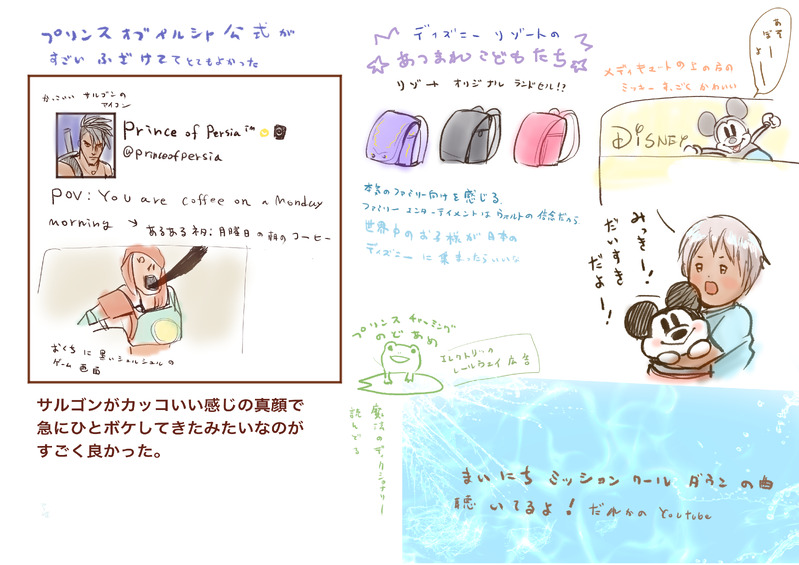 プリンス オブ ペルシャ 公式が
すごい ふざけてて とてもよかった
かっこいい サルゴンの
アイコン
Prince of Persia™
@princeofpersia
POV: You are coffee on a Monday
morning → あるあるネタ: 月曜日の朝のコーヒー
おくちに 黒いシュルシュルの
ゲーム 画面
サルゴンがカッコいい感じの真顔で
急にひとボケしてきたみたいなのが
すごく良かった。
ディズニー リゾートの
☆あつまれ こどもたち☆
リゾート オリジナル ランドセル!?
本気のファミリー向けを感じる
ファミリー エンターテイメントは ウォルトの信念だから
世界中のお子様が日本の
ディズニーに 集まったらいいな
プリンス チャーミング
のどあめ
エレクトリック
レールウェイ 広告
魔法のディクショナリー
読んでる
あそぼ
よーー
メディキュートの上の方の
ミッキー すっごく かわいい
DISNEY
みっきー!
だいすき
だよー!
まいにち ミッション クール ダウン の曲
聴いてるよ! だれかの Youtube